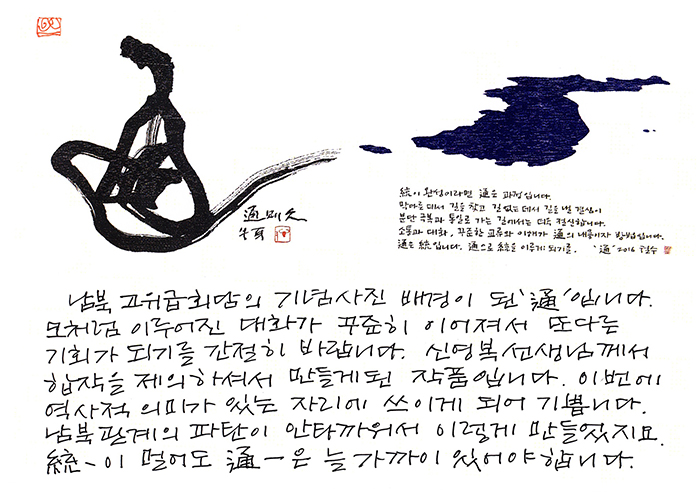 通則久
牛耳
統이 완성이라면 通은 과정입니다.
막다른 데서 길을 찾고 길 없는 데서 길을 낼 결심이
분단 극복과 통일로 가는 길에서는 더욱 절실합니다.
소통과 대화, 꾸준한 교류와 이해가 通의 내용이자 방법입니다.
通은 統입니다. 通으로 統을 이루게 되기를. '通' 2016 철수
남북 고위급회담의 기념사진 배경이 된 '通'입니다.
모처럼 이루어진 대화가 꾸준히 이어져서 또다른
기회가 되기를 간절히 바랍니다. 신영복선생님께서
합작을 제의하셔서 만들게된 작품입니다. 이번에
역사적 의미가 있는 자리에 쓰이게 되어 기쁩니다.
남북관계의 파탄이 안타까워서 이렇게 만들었지요.
統一이 멀어도 通一은 늘 가까이 있어야합니다.